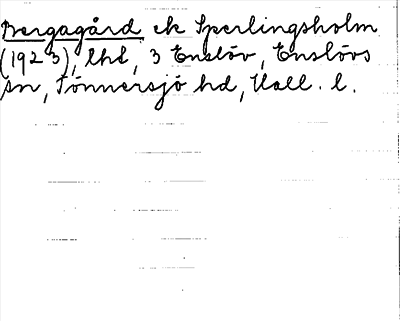 Bergagård ek Sperlingsholm
(1923), lht, 3 Enslöv, Enslövs
sn, Tönnersjö hd, Hall. l.